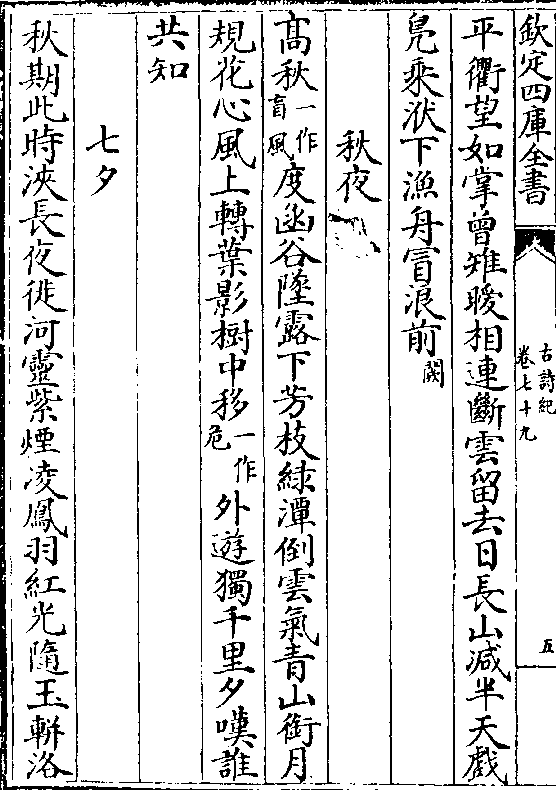 欽定四庫全書
古詩紀
卷七十九
五
平衢望如掌曾雉曖相連斷雲留去日長山減半天戲
鳧乘洑下漁舟冒浪前闕
秋夜
高秋一作盲風度函谷墜露下芳枝綠潭倒雲氣青山銜月
規花心風上轉葉影樹中移一作危外遊獨千里夕嘆誰
共知
七夕
秋期此時浹長夜徙河靈紫煙凌鳳羽紅光隨玉軿洛